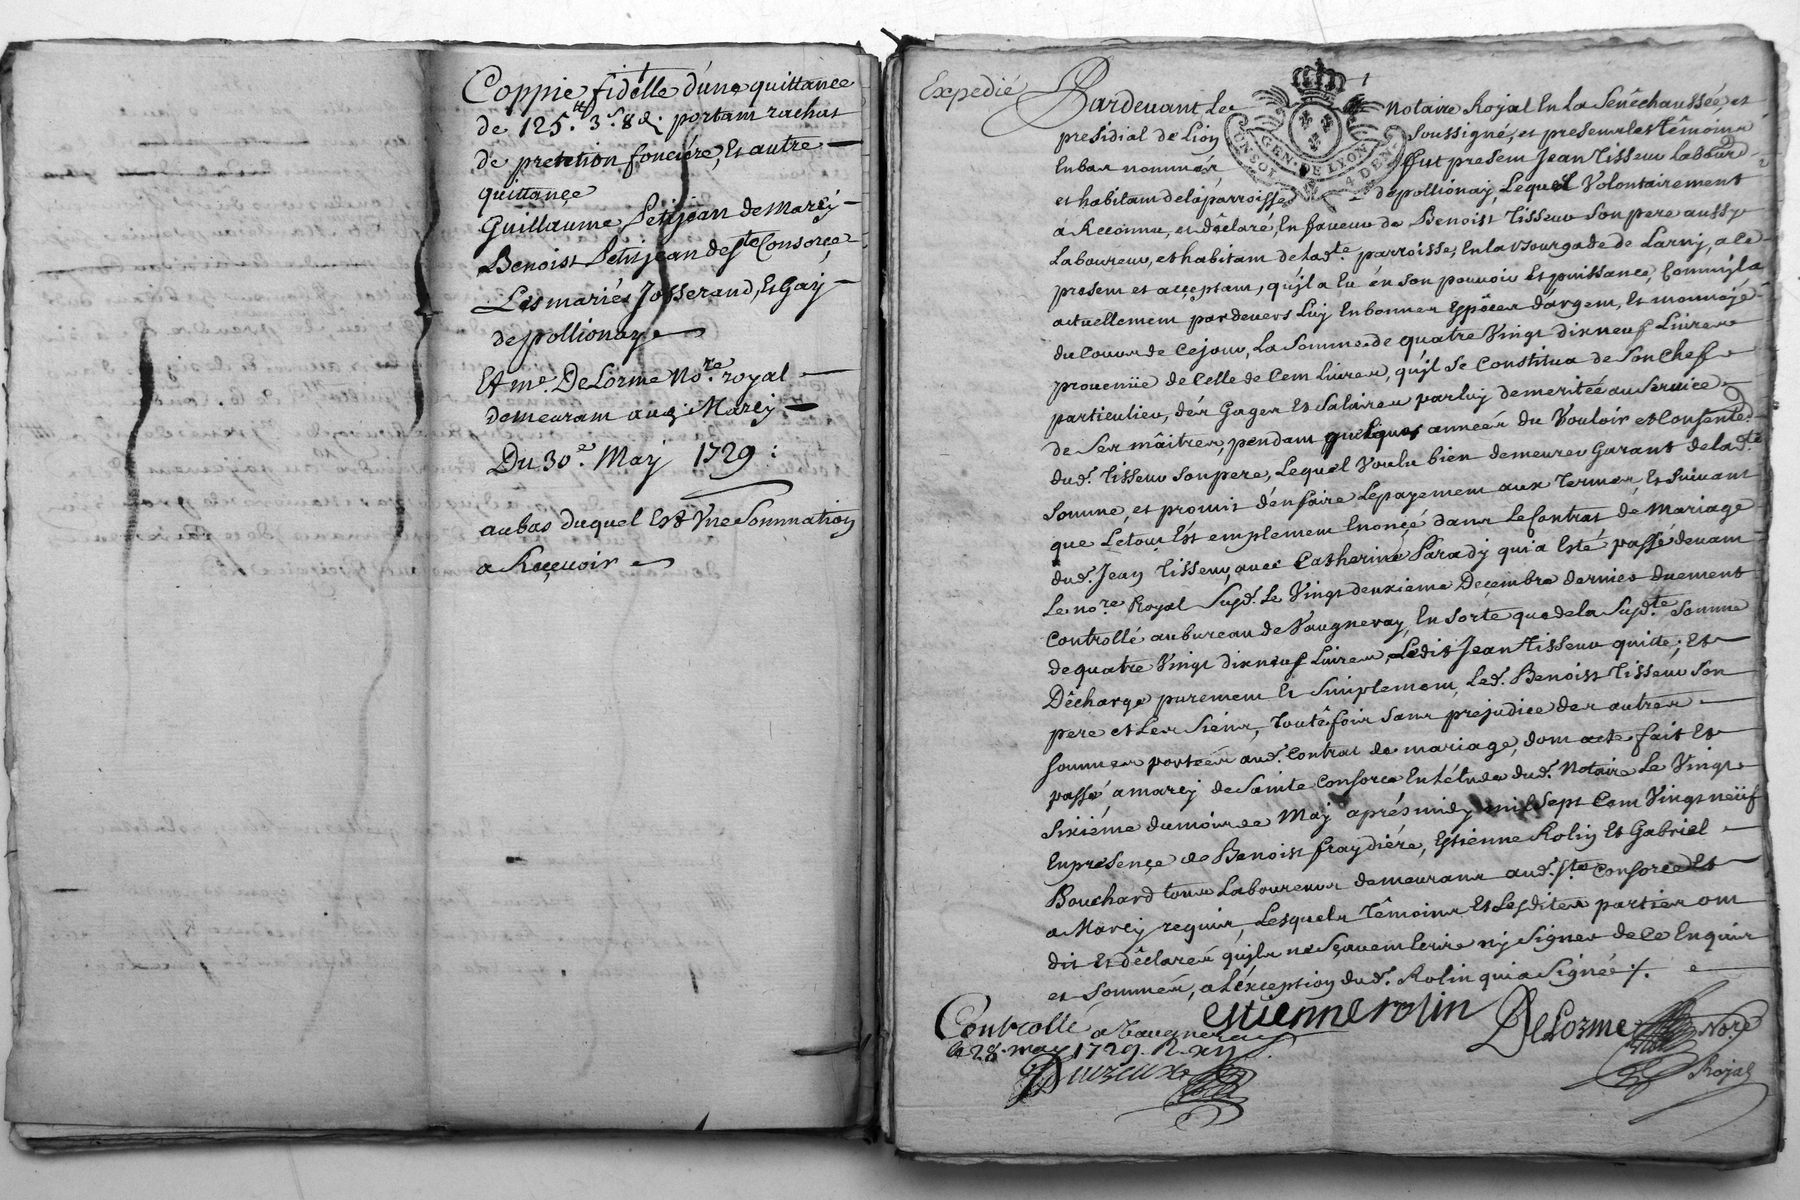 Coppie fidelle d'une quittance
de 125.ᵗᵗ 3.ˢ 8 d. portant rachat
de pretetion fonciére, Et autre
quittançe
Guillaume Petitjean de Marcÿ
Benoist Petitjean de Sᵗᵉ Consorçe
Les mariés Josserand, Et Gaÿ
de pollionay
Et mᵉ DeLorme noʳᵉ royal
demeurant aud. Marcÿ
Du 30ᵉ. Maÿ 1729 :
au bas duquel Est Vne Sommation
a Reçeuoir
Expedié
Pardeuant Le Notaire Royal En La Senêchaussée et
presidial de Lion Soussigné, et presens les têmoins
Enbas nommés, fut present Jean Tisseur Labour.
et habitant de la parroisse de pollionaÿ, Lequel Volontairement
à Reconnu, et dêclaré, En faueur de Benoist Tisseur Son pere aussÿ
Laboureur, et habitant de Ladᵗᵉ. parroisse, En la Bourgade de Larnÿ, a Ce
present et acçeptant, qu'jl a Eu en Son pouuoir Et puissançe, Comm'jl a
actuellement pardeuers Luÿ En bonnes Espêces d'argent, Et monnoÿe
du Cours de Ce jour, La Somme de quatre Vingt dixneuf Liures
prouenüe de Celle de Cent Liures, qu'jl Se Constitua de Son Chef
particulier, des Gages Et Salaires par luÿ demeritée au Seruice
de Ses mâitres, pendant quelques années du Vouloir et Consentᵗ.
dud. Tisseur Son pere, Lequel Voulu bien demeurer Garant de Ladᵗᵉ.
Somme, et promit d'en faire Le payement aux Termes, Et Suiuant
que Le tout Est emplement Enonçé dans Le Contrat de Mariage
dud. Jean Tisseur, auec Catherine Paradÿ qui a Esté passé deuant
Le noʳᵉ Royal Susd. Le Vingt deuxieme Decembre dernier duement
Controllé au bureau de Vaugneray, En Sorte que de la Susdᵗᵉ. Somme
de quatre Vingt dixneuf Liures, Ledit Jean Tisseur quitte, Et
Dêcharge purement Et Simplement, Led. Benoist Tisseur Son
pere et Les Siens, toutêfois Sans prejudice des autres
Sommes portées aud. Contrat de mariage, dont acte fait Et
passé a marcÿ de Sainte Consorce En L'étude dud. Notaire Le Vingt
Sixiéme du mois de Maÿ aprés midy mil Sept Cent Vingt neüf
En presençe de Benoist fraydiére, Estienne Rolin Et Gabriel
Bouchard tous Laboureurs demeurans aud. Sᵗᵉ Consorce Et
a Marcÿ requis, Lesquels têmoins Et Lesdites parties ont
dit Et dêclarés qu'jls ne Sçauent Ecrire nÿ Signer de Ce Enquis
et Sommés, a L'éxception dud. Rolin qui a Signé ./.
estienne rolin
DeLorme Noʳᵉ
Royal
Controllé a Vaugneray
le 28. may 1729. R. xij s.